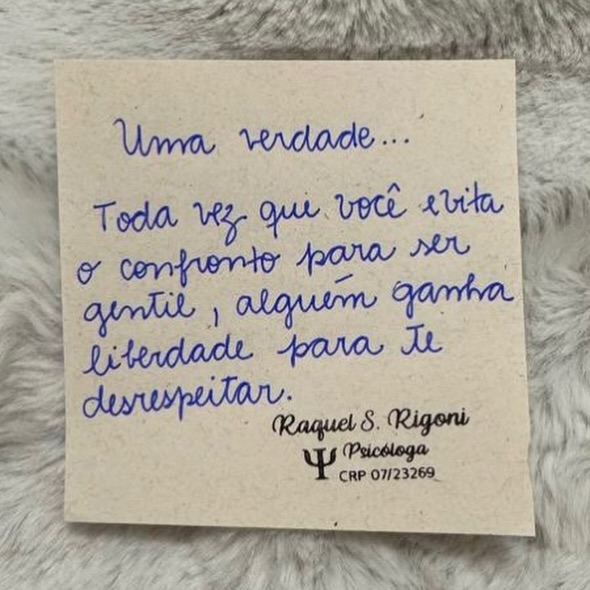 Uma verdade...
Toda vez que você evita
o confronto para ser
gentil, alguém ganha
liberdade para te
desrespeitar.
Raquel S. Rigoni
Ψ Psicóloga
CRP 07/23269